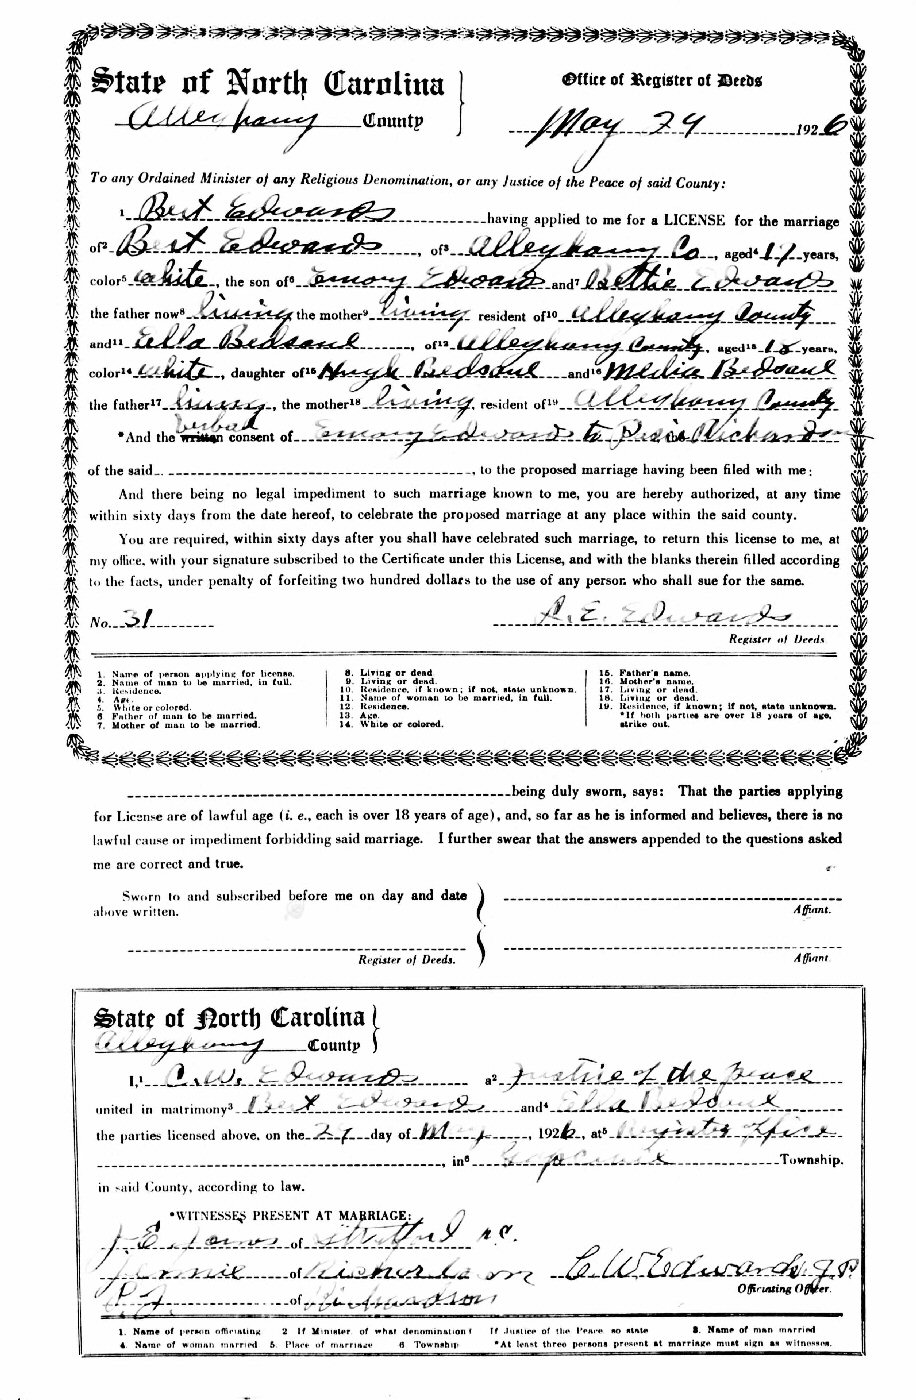 State of North Carolina
Alleghany County
Office of Register of Deeds
May 24 1926
To any Ordained Minister of any Religious Denomination, or any Justice of the Peace of said County:
1 Bert Edwards having applied to me for a LICENSE for the marriage
of2 Bert Edwards, of3 Alleghany Co, aged4 17 years,
color5 White, the son of6 Emory Edwards and7 Bettie Edwards
the father now8 living the mother9 living resident of10 Alleghany County
and11 Ella Bedsaul, of12 Alleghany County, aged13 18 years,
color14 White, daughter of15 Hugh Bedsaul and16 Media Bedsaul
the father17 living, the mother18 living, resident of19 Alleghany County
verbal
*And the written consent of Emory Edwards to Richardson
of the said , to the proposed marriage having been filed with me:
And there being no legal impediment to such marriage known to me, you are hereby authorized, at any time
within sixty days from the date hereof, to celebrate the proposed marriage at any place within the said county.
You are required, within sixty days after you shall have celebrated such marriage, to return this license to me, at
my office, with your signature subscribed to the Certificate under this License, and with the blanks therein filled according
to the facts, under penalty of forfeiting two hundred dollars to the use of any person who shall sue for the same.
No. 31
Edwards
Register of Deeds
1. Name of person applying for license.
2. Name of man to be married, in full.
3. Residence.
4. Age.
5. White or colored.
6 Father of man to be married.
7. Mother of man to be married.
8. Living or dead
9. Living or dead.
10. Residence, if known; if not, state unknown.
11. Name of woman to be married, in full.
12. Residence.
13. Age.
14. White or colored.
15. Father's name.
16. Mother's name.
17. Living or dead.
18. Living or dead.
19. Residence, if known; if not, state unknown.
*If both parties are over 18 years of age,
strike out.
being duly sworn, says: That the parties applying
for License are of lawful age (i. e., each is over 18 years of age), and, so far as he is informed and believes, there is no
lawful cause or impediment forbidding said marriage. I further swear that the answers appended to the questions asked
me are correct and true.
Sworn to and subscribed before me on day and date
above written.
Affiant.
Register of Deeds.
Affiant
State of North Carolina
Alleghany County
I,1 C. W. Edwards a2 Justice of the peace
united in matrimony3 Bert Edwards and4 Ella Bedsaul
the parties licensed above, on the day of May, 1926, at5 Register office
, in6 Township.
in said County, according to law.
*WITNESSES PRESENT AT MARRIAGE:
J. E. of Stratford N.C.
Jennie of Richardson
of Richardson
C. W. Edwards, J. P.
Officiating Officer.
1. Name of person officiating 2 If Minister, of what denomination; If Justice of the Peace, so state 3. Name of man married
4. Name of woman married 5. Place of marriage 6 Township *At least three persons present at marriage must sign as witnesses.